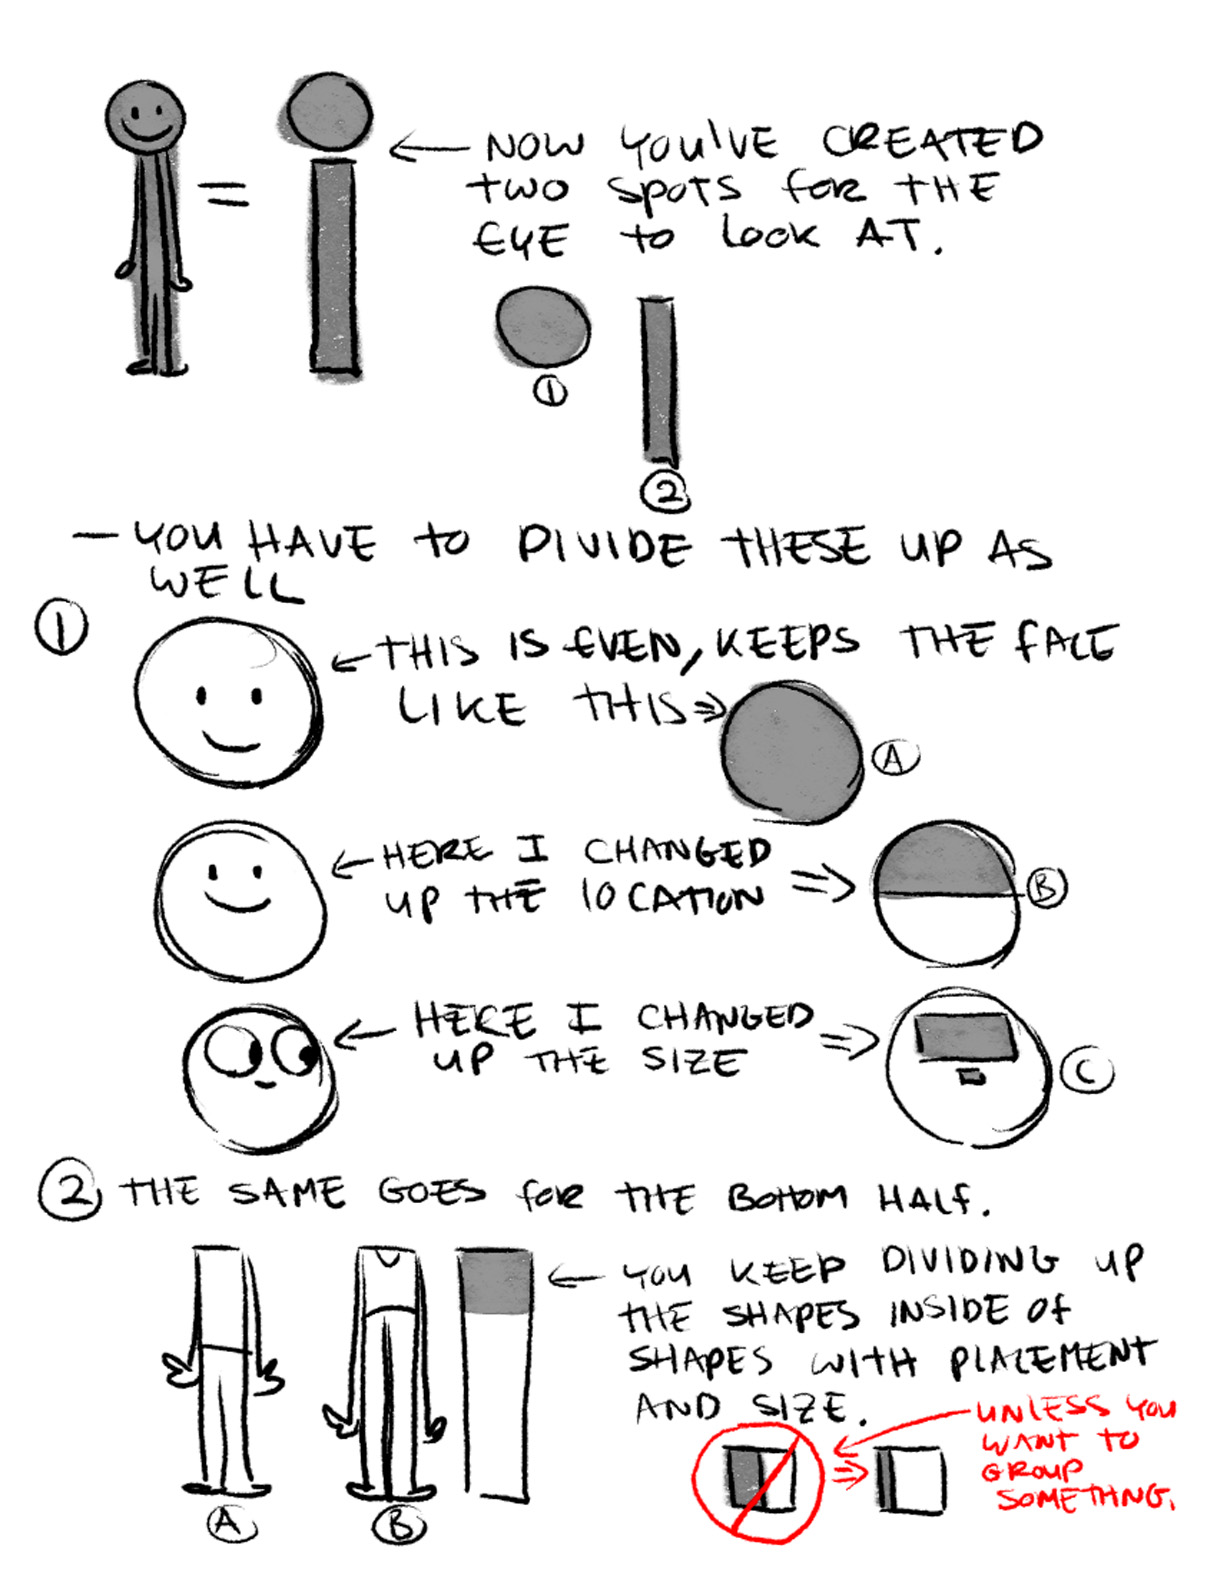 NOW YOU'VE CREATED
TWO SPOTS FOR THE
EYE TO LOOK AT.
1
2
— YOU HAVE TO DIVIDE THESE UP AS
WELL
1
THIS IS EVEN, KEEPS THE FACE
LIKE THIS
A
HERE I CHANGED
UP THE LOCATION
B
HERE I CHANGED
UP THE SIZE
C
2 THE SAME GOES FOR THE BOTTOM HALF.
YOU KEEP DIVIDING UP
THE SHAPES INSIDE OF
SHAPES WITH PLACEMENT
AND SIZE.
UNLESS YOU
WANT TO
GROUP
SOMETHNG.
A
B